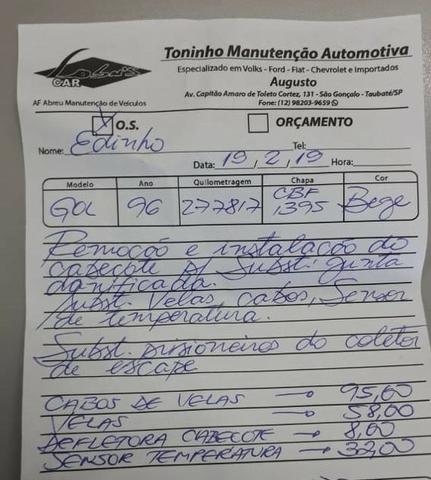 Toninho Manutenção Automotiva
Especializado em Volks - Ford - Fiat - Chevrolet e Importados
Augusto
Av. Capitão Amaro de Toleto Cortez, 131 - São Gonçalo - Taubaté/SP
Fone: (12) 98203-9659
CAR
AF Abreu Manutenção de Veículos
X O.S.
ORÇAMENTO
Nome: Edinho Tel:
Data: 19/2/19 Hora:
Modelo Ano Quilometragem Chapa Cor
Gol 96 277817 CBF 1395 Bege
Remoção e instalação do
cabeçote p/ Subst. junta
danificada.
Subst. Velas, cabos, Sensor
de temperatura.
Subst. prisioneiros do coletor
de escape
CABOS DE VELAS → 95,00
VELAS → 58,00
DEFLETORA CABEÇOTE → 8,00
SENSOR TEMPERATURA → 32,00